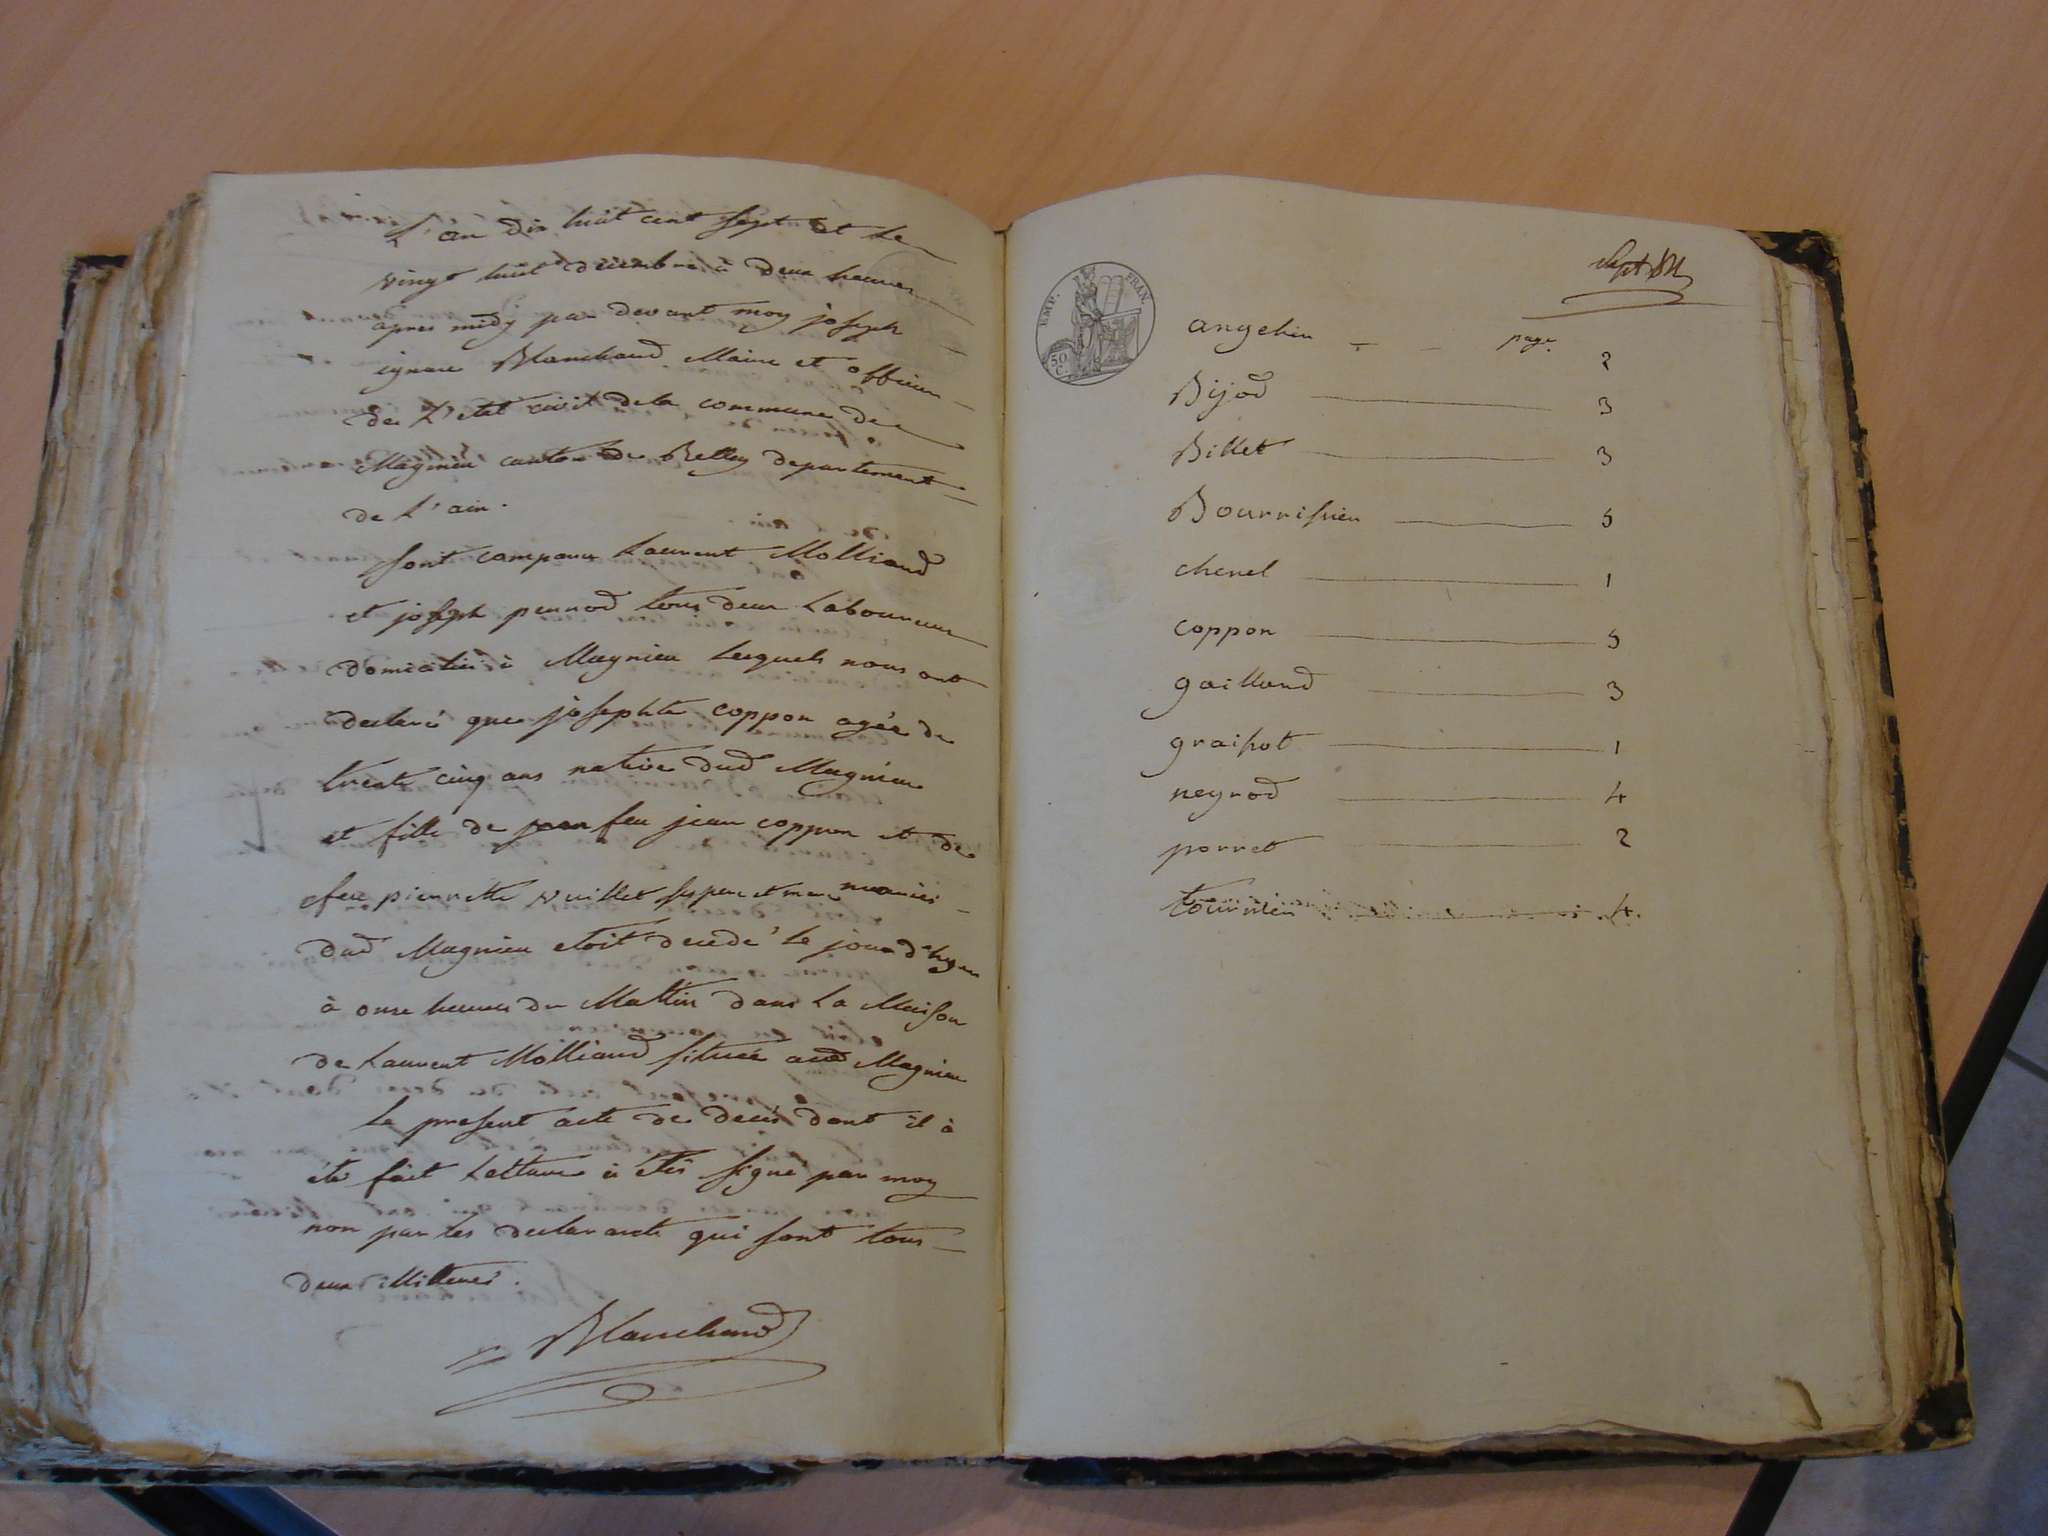 L'an dix huit cent sept et le
vingt huit decembre à deux heures
apres midy par devant moy joseph
ignace Blanchard Maire et officier
de L'etat civil de la commune de
Magnieu canton de Belley departement
de L'ain.
sont comparus Laurent Molliand
et joseph pernod tous deux Laboureurs
domiciliés à Magnieu Lesquels nous ont
declaré que josephte coppon agée de
trente cinq ans native dud Magnieu
et fille de feu jean coppon et de
feu pierrette vuillet ses pere et mere mariés
dud Magnieu etoit decedé le jour d'hyer
à onze heures du Mattin dans La Maison
de Laurent Molliand située aud Magnieu
Le present acte de decés dont il à
été fait Lecture à étés signé par moy
non par les declarants qui sont tous
deux illiterés.
Blanchard
EMP. FRAN.
50
C.
Sept
angelin page 2
Bijod 3
Billet 3
Bourrissien 5
chenel 1
coppon 5
gaillard 3
graisot 1
neyrod 4
porret 2
tournier 4.